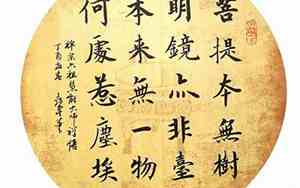 菩提本無樹
明鏡亦非臺
本来無一物
何處惹塵埃
禅宗六祖慧能大师
丁酉